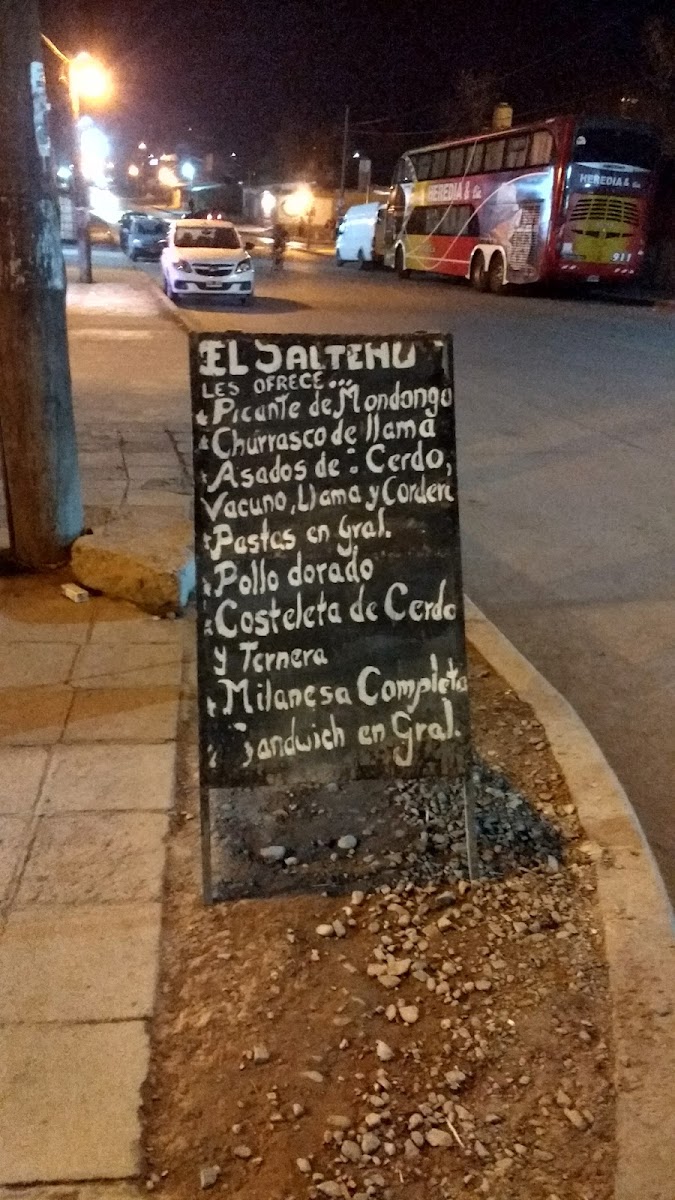 HEREDIA & 
HEREDIA &
911
EL SALTEÑO
LES OFRECE...
Picante de Mondongo
Churrasco de llama
Asados de: Cerdo,
Vacuno, Llama y Cordero
Pastas en Gral.
Pollo dorado
Costeleta de Cerdo
y Ternera
Milanesa Completa
Sandwich en Gral.